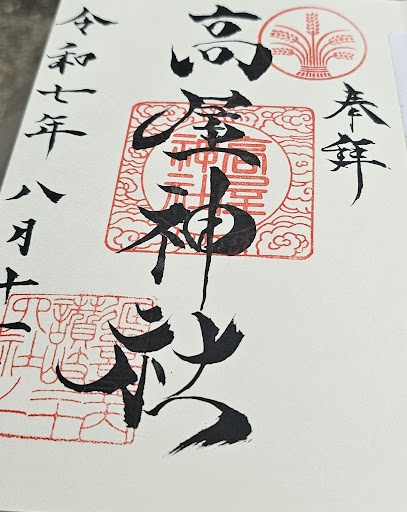 奉拝
高屋神社
高屋神社
令和七年八月十一